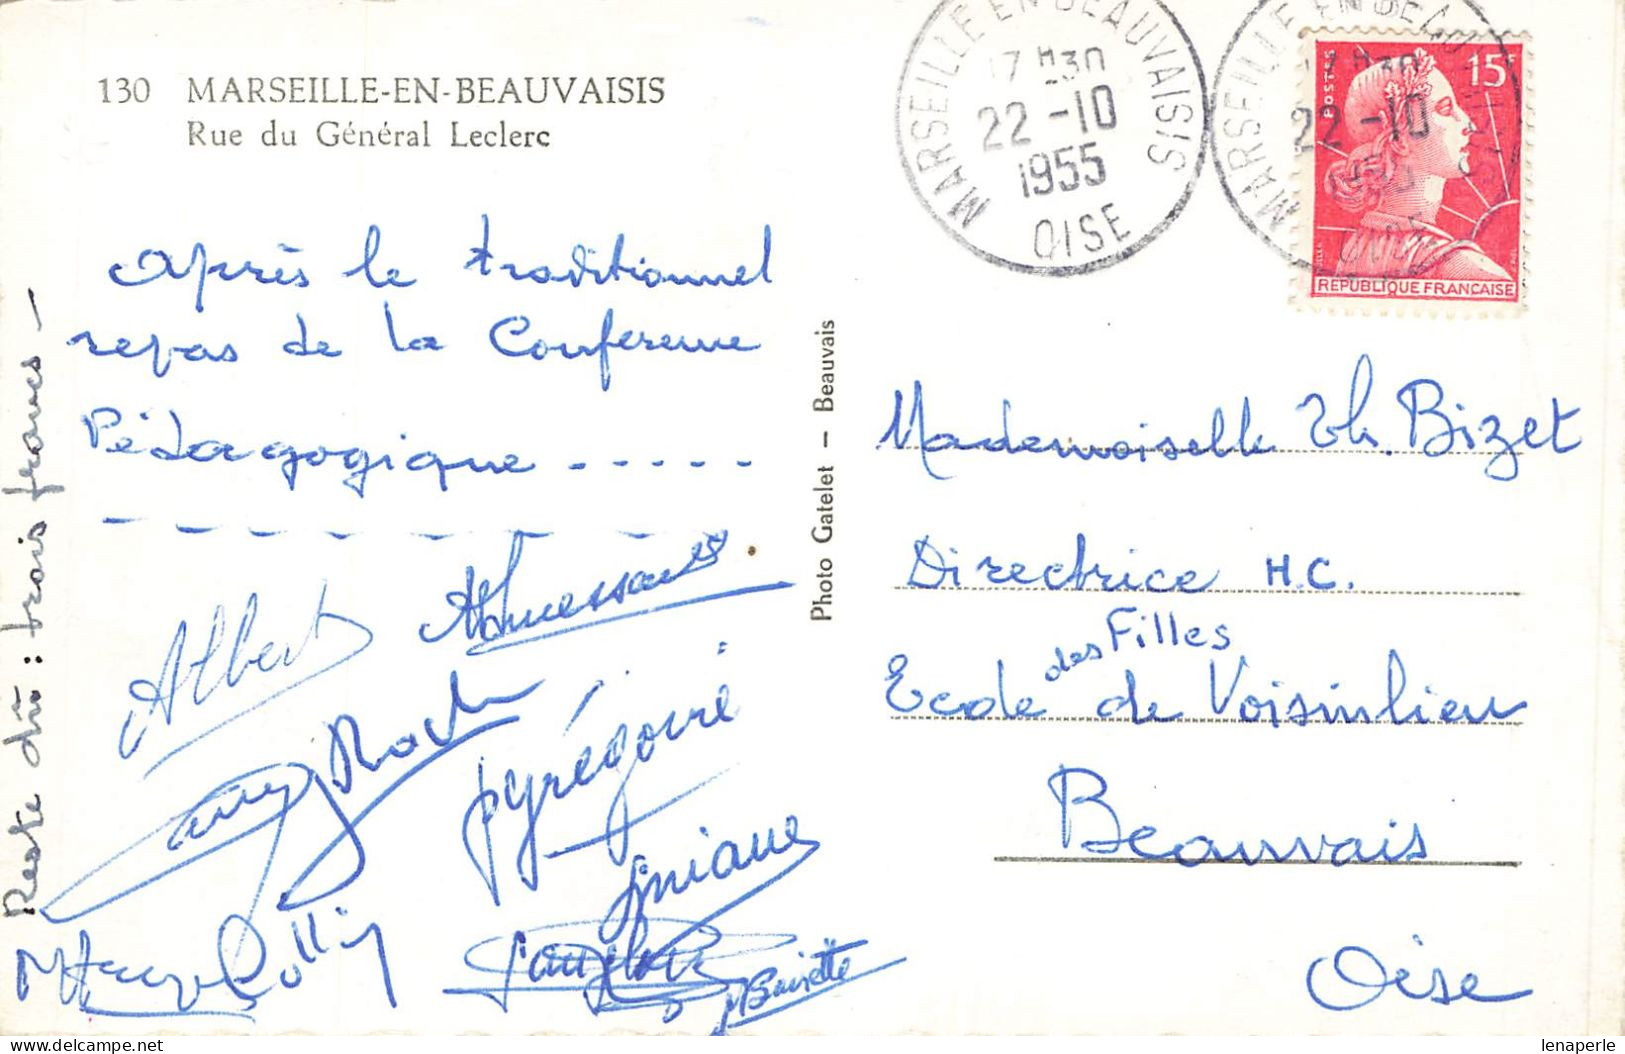 130 MARSEILLE-EN-BEAUVAISIS
Rue du Général Leclerc
Après le traditionnel
repas de la Conférence
Pédagogique - - - - -
Albert
Grégoire
Collin
Reste dû : trois francs -
Photo Gatelet - Beauvais
MARSEILLE EN BEAUVAISIS
17 H30
22 -10
1955
OISE
MARSEILLE EN BEAUVAISIS
17 H30
22 -10
1955
OISE
POSTES
15F
REPUBLIQUE FRANÇAISE
Mademoiselle Th. Bizet
Directrice H.C.
des Filles
Ecole de Voisinlieu
Beauvais
Oise
lenaperle